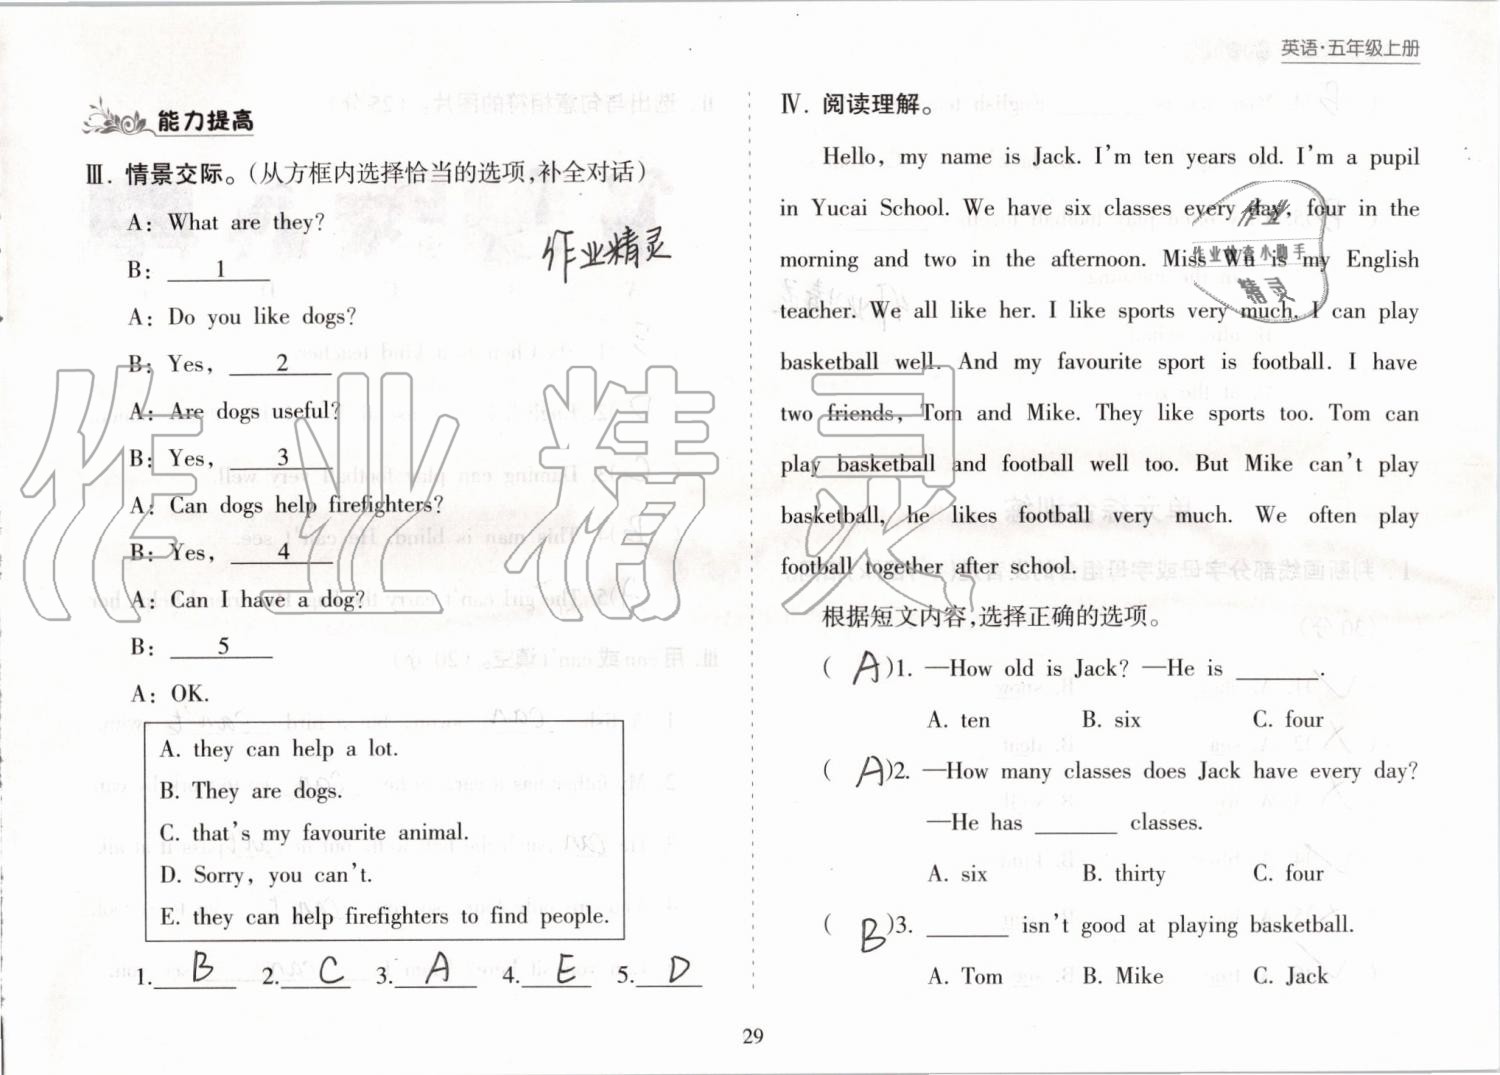 英语·五年级上册
能力提高
Ⅲ. 情景交际。(从方框内选择恰当的选项,补全对话)
A: What are they?
B: 1
A: Do you like dogs?
B: Yes, 2
A: Are dogs useful?
B: Yes, 3
A: Can dogs help firefighters?
B: Yes, 4
A: Can I have a dog?
B: 5
A: OK.
A. they can help a lot.
B. They are dogs.
C. that's my favourite animal.
D. Sorry, you can't.
E. they can help firefighters to find people.
1. B 2. C 3. A 4. E 5. D
作业精灵
作业精灵
Ⅳ. 阅读理解。
Hello, my name is Jack. I'm ten years old. I'm a pupil
in Yucai School. We have six classes every day, four in the
morning and two in the afternoon. Miss Wu is my English
teacher. We all like her. I like sports very much. I can play
basketball well. And my favourite sport is football. I have
two friends, Tom and Mike. They like sports too. Tom can
play basketball and football well too. But Mike can't play
basketball, he likes football very much. We often play
football together after school.
根据短文内容,选择正确的选项。
( A )1. —How old is Jack? —He is ______.
A. ten B. six C. four
( A )2. —How many classes does Jack have every day?
—He has ______ classes.
A. six B. thirty C. four
( B )3. ______ isn't good at playing basketball.
A. Tom B. Mike C. Jack
作业
作业检查小助手
精灵
29